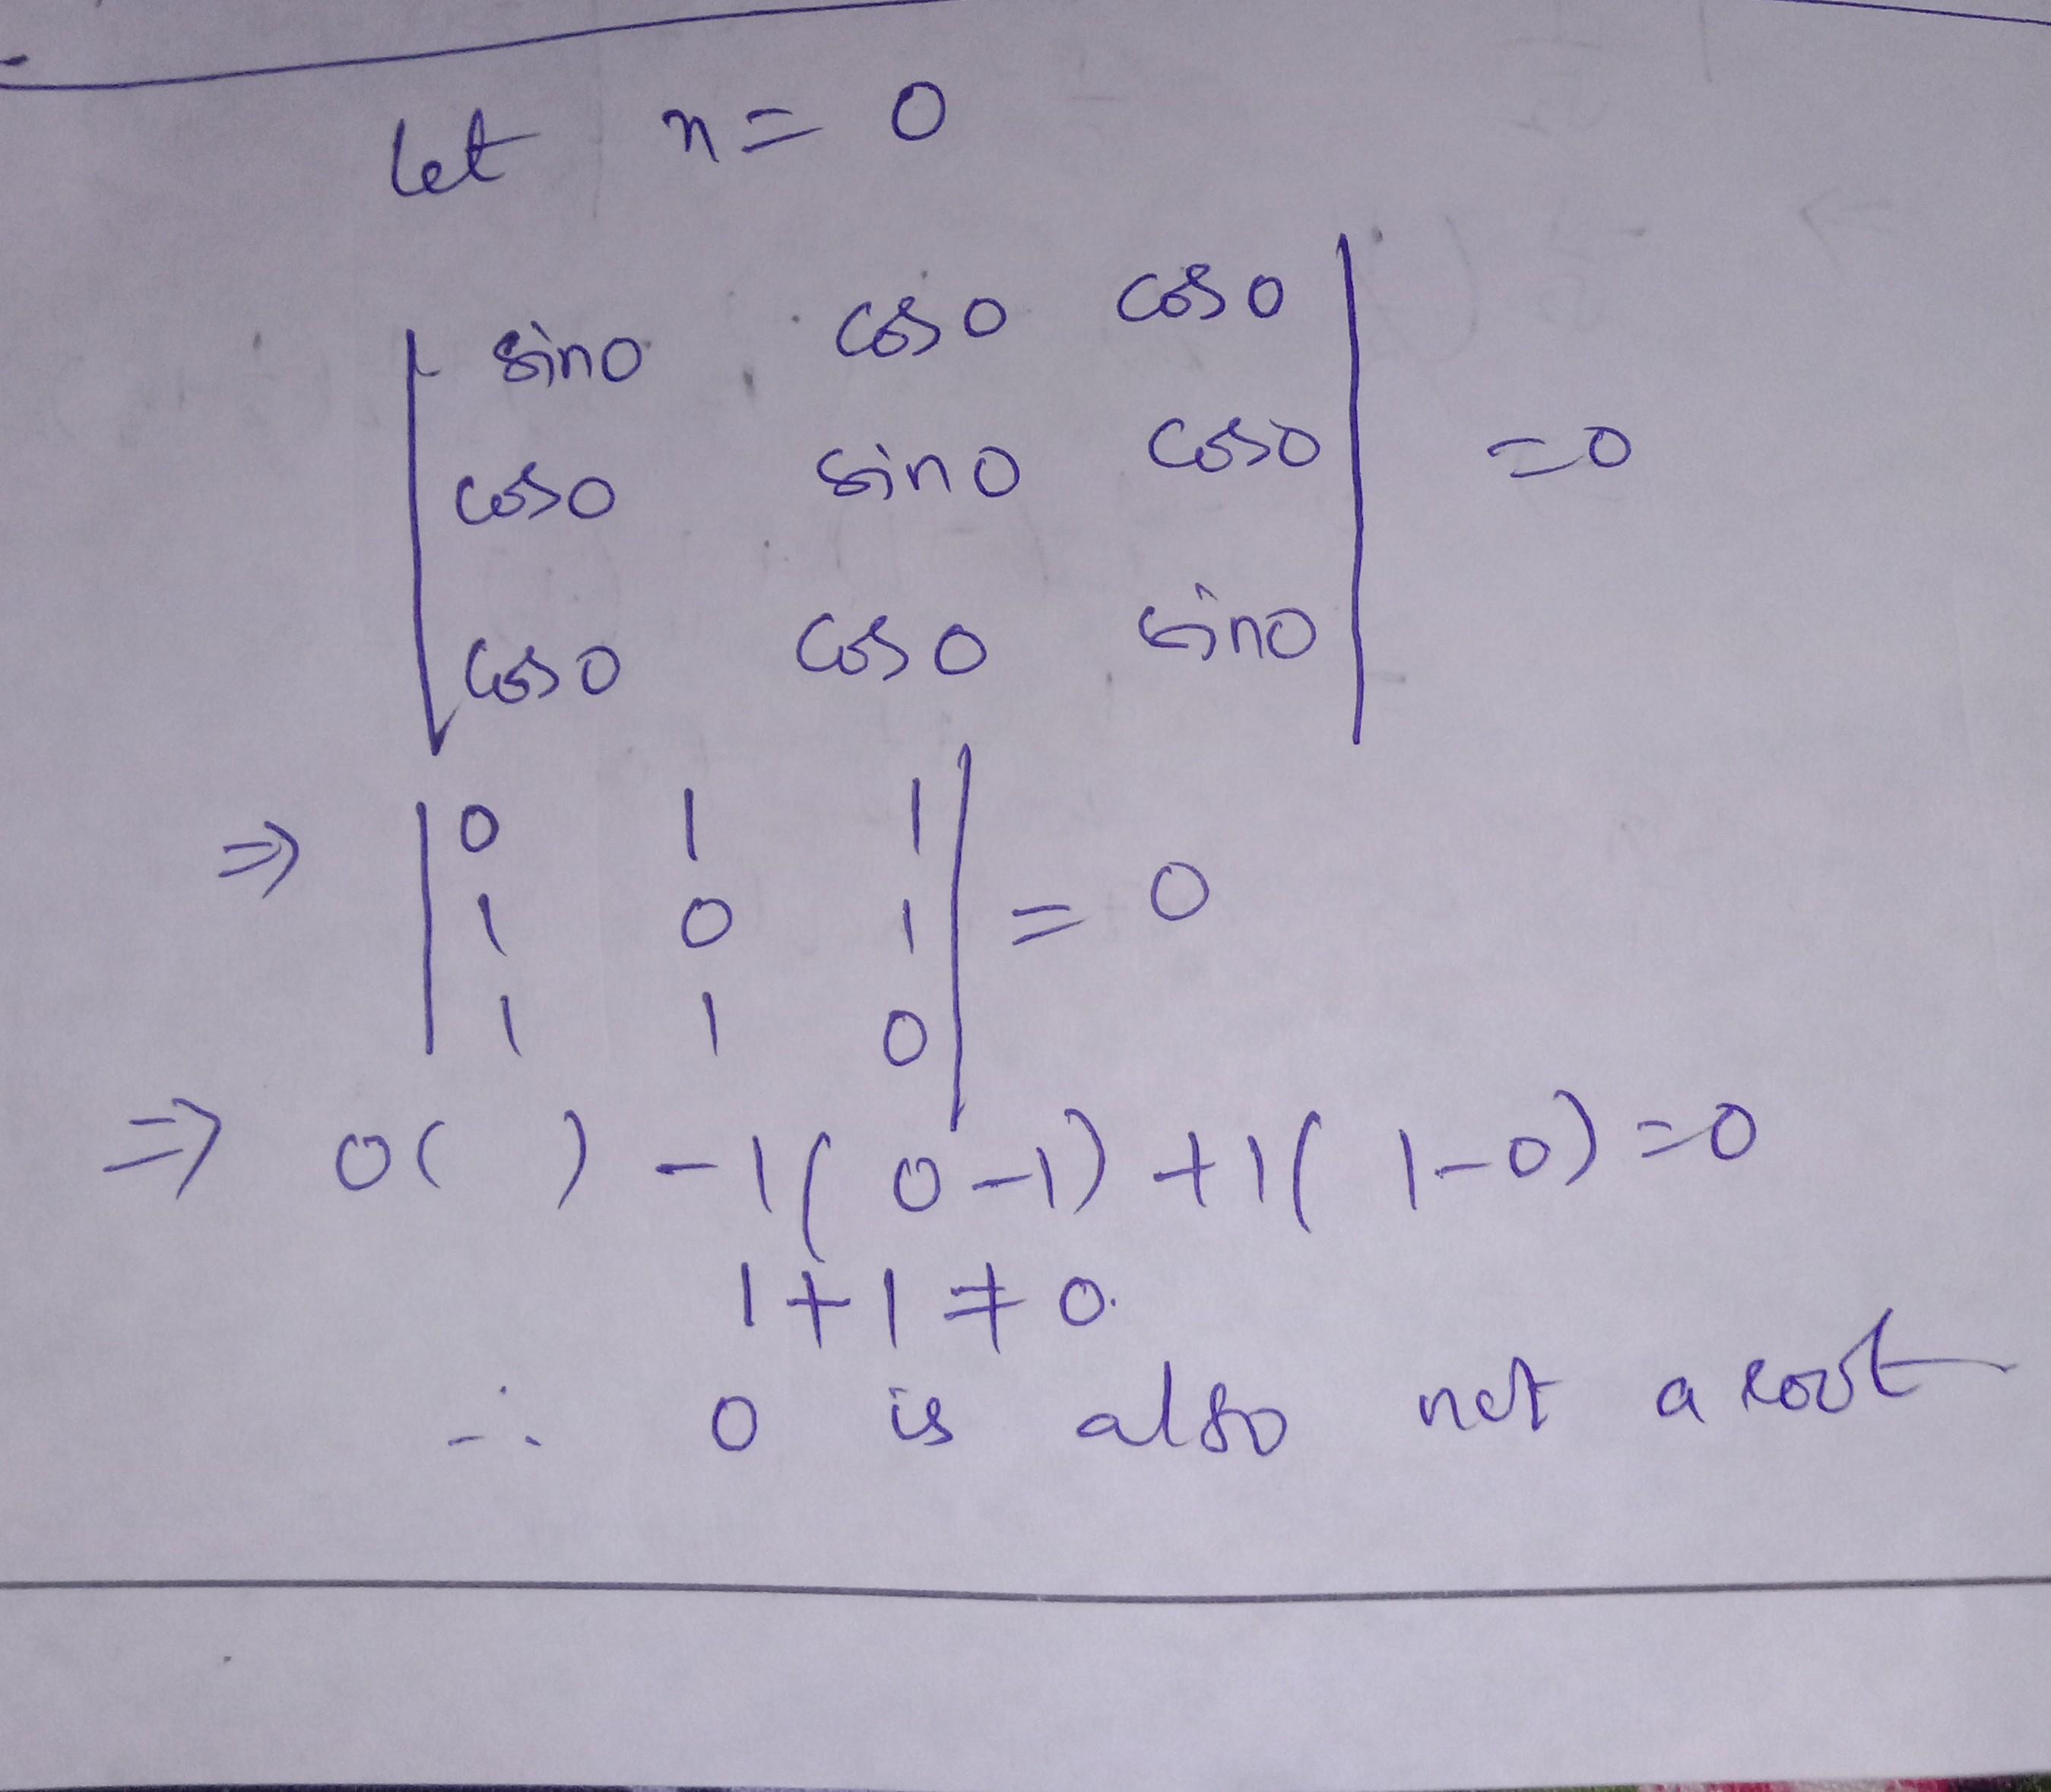 let x = 0
| sin0 cos0 cos0 |
| cos0 sin0 cos0 | = 0
| cos0 cos0 sin0 |
⇒ | 0 1 1 |
| 1 0 1 | = 0
| 1 1 0 |
⇒ 0( ) -1( 0-1) +1( 1-0) = 0
1+1 ≠ 0.
∴ 0 is also not a root